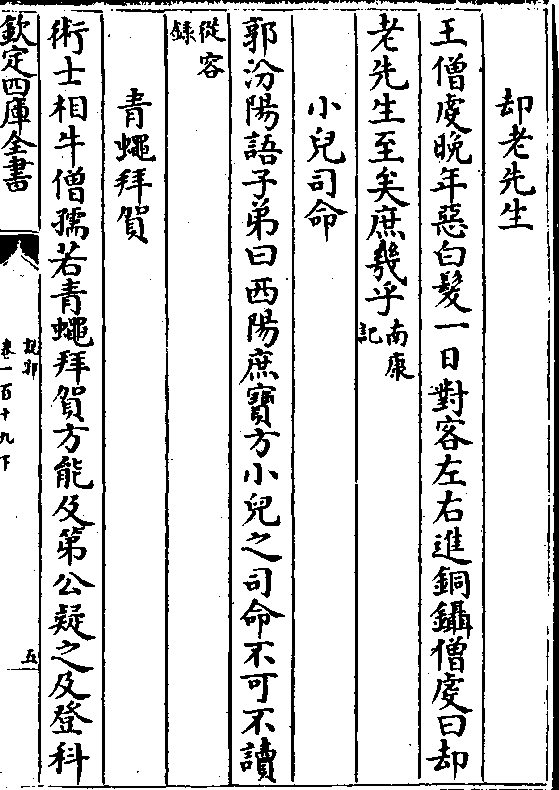 却老先生
王僧虔晚年惡白髮一日對客左右進銅鑷僧虔曰却
老先生至矣庶幾乎南康
記
小兒司命
郭汾陽語子弟曰西陽庶寶方小兒之司命不可不讀
從容
錄
青蠅拜賀
術士相牛僧孺若青蠅拜賀方能及第公疑之及登科
欽定四庫全書
說郛
卷一百十九下
五